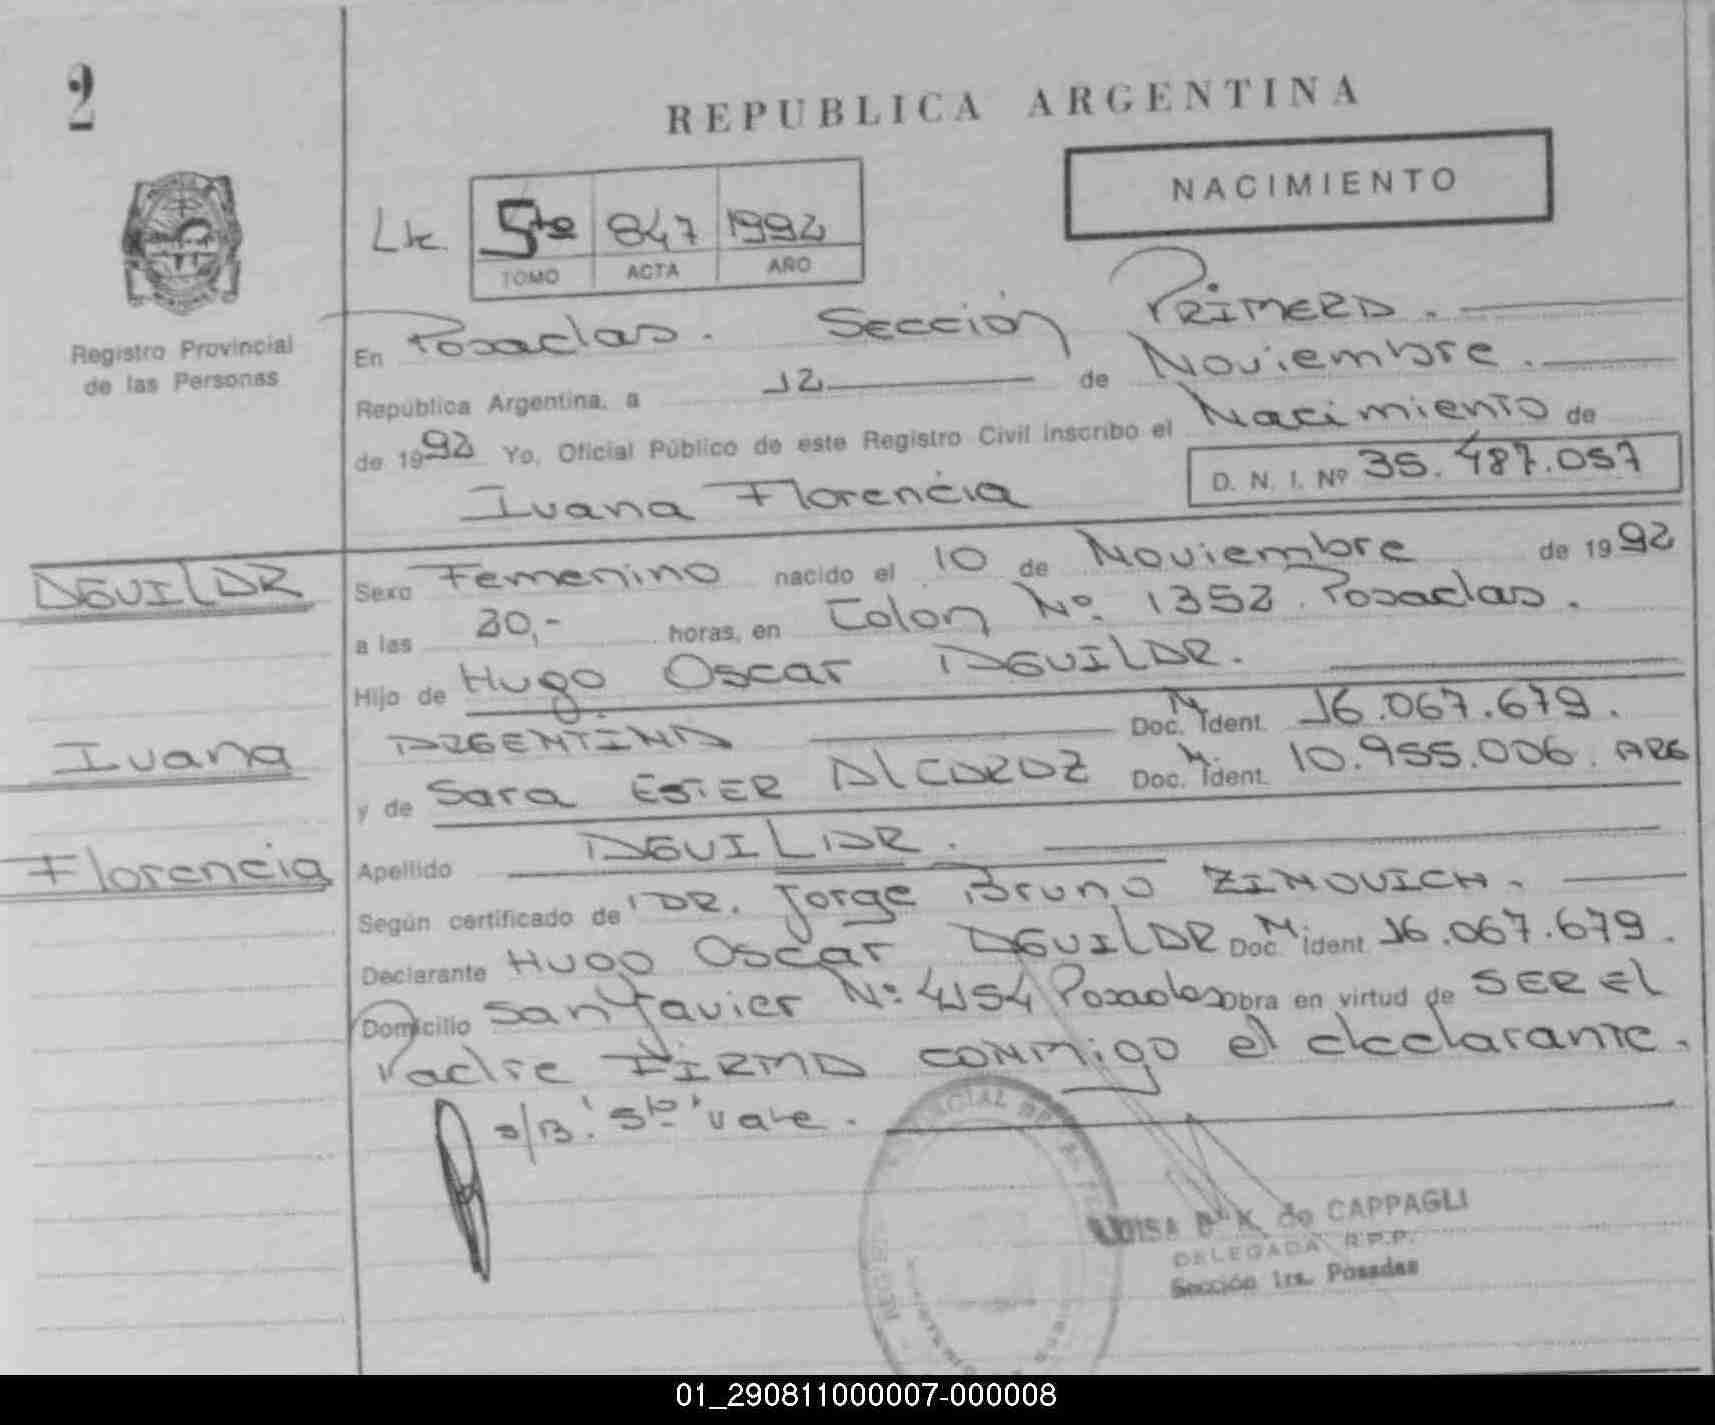 2
REPUBLICA ARGENTINA
NACIMIENTO
5to 847 1992
TOMO ACTA AÑO
Registro Provincial
de las Personas
En Posadas. Sección Primera.
República Argentina, a 12 de Noviembre.
de 1992 Yo, Oficial Público de este Registro Civil inscribo el Nacimiento de
D. N. I. Nº 35.487.057
Ivana Florencia
AGUILAR
Ivana
Florencia
Sexo Femenino nacido el 10 de Noviembre de 1992
a las 20,- horas, en Colón Nº. 1352 Posadas.
Hijo de Hugo Oscar AGUILAR.
ARGENTINA Doc. M. Ident. 16.067.679.
y de Sara ESTER ALCARAZ Doc. M. Ident. 10.955.006. ARG
Apellido AGUILAR.
Según certificado de DR. Jorge Bruno ZINOVICH.
Declarante HUGO Oscar AGUILAR Doc. M. Ident. 16.067.679.
Domicilio San Javier Nº: 4154 Posadas obra en virtud de SER El
Padre FIRMA CONMigo el declarante.
s/B. "5to" vale.
LUISA B. K. de CAPPAGLI
DELEGADA R.P.P.
Sección 1ra. Posadas
01_290811000007-000008